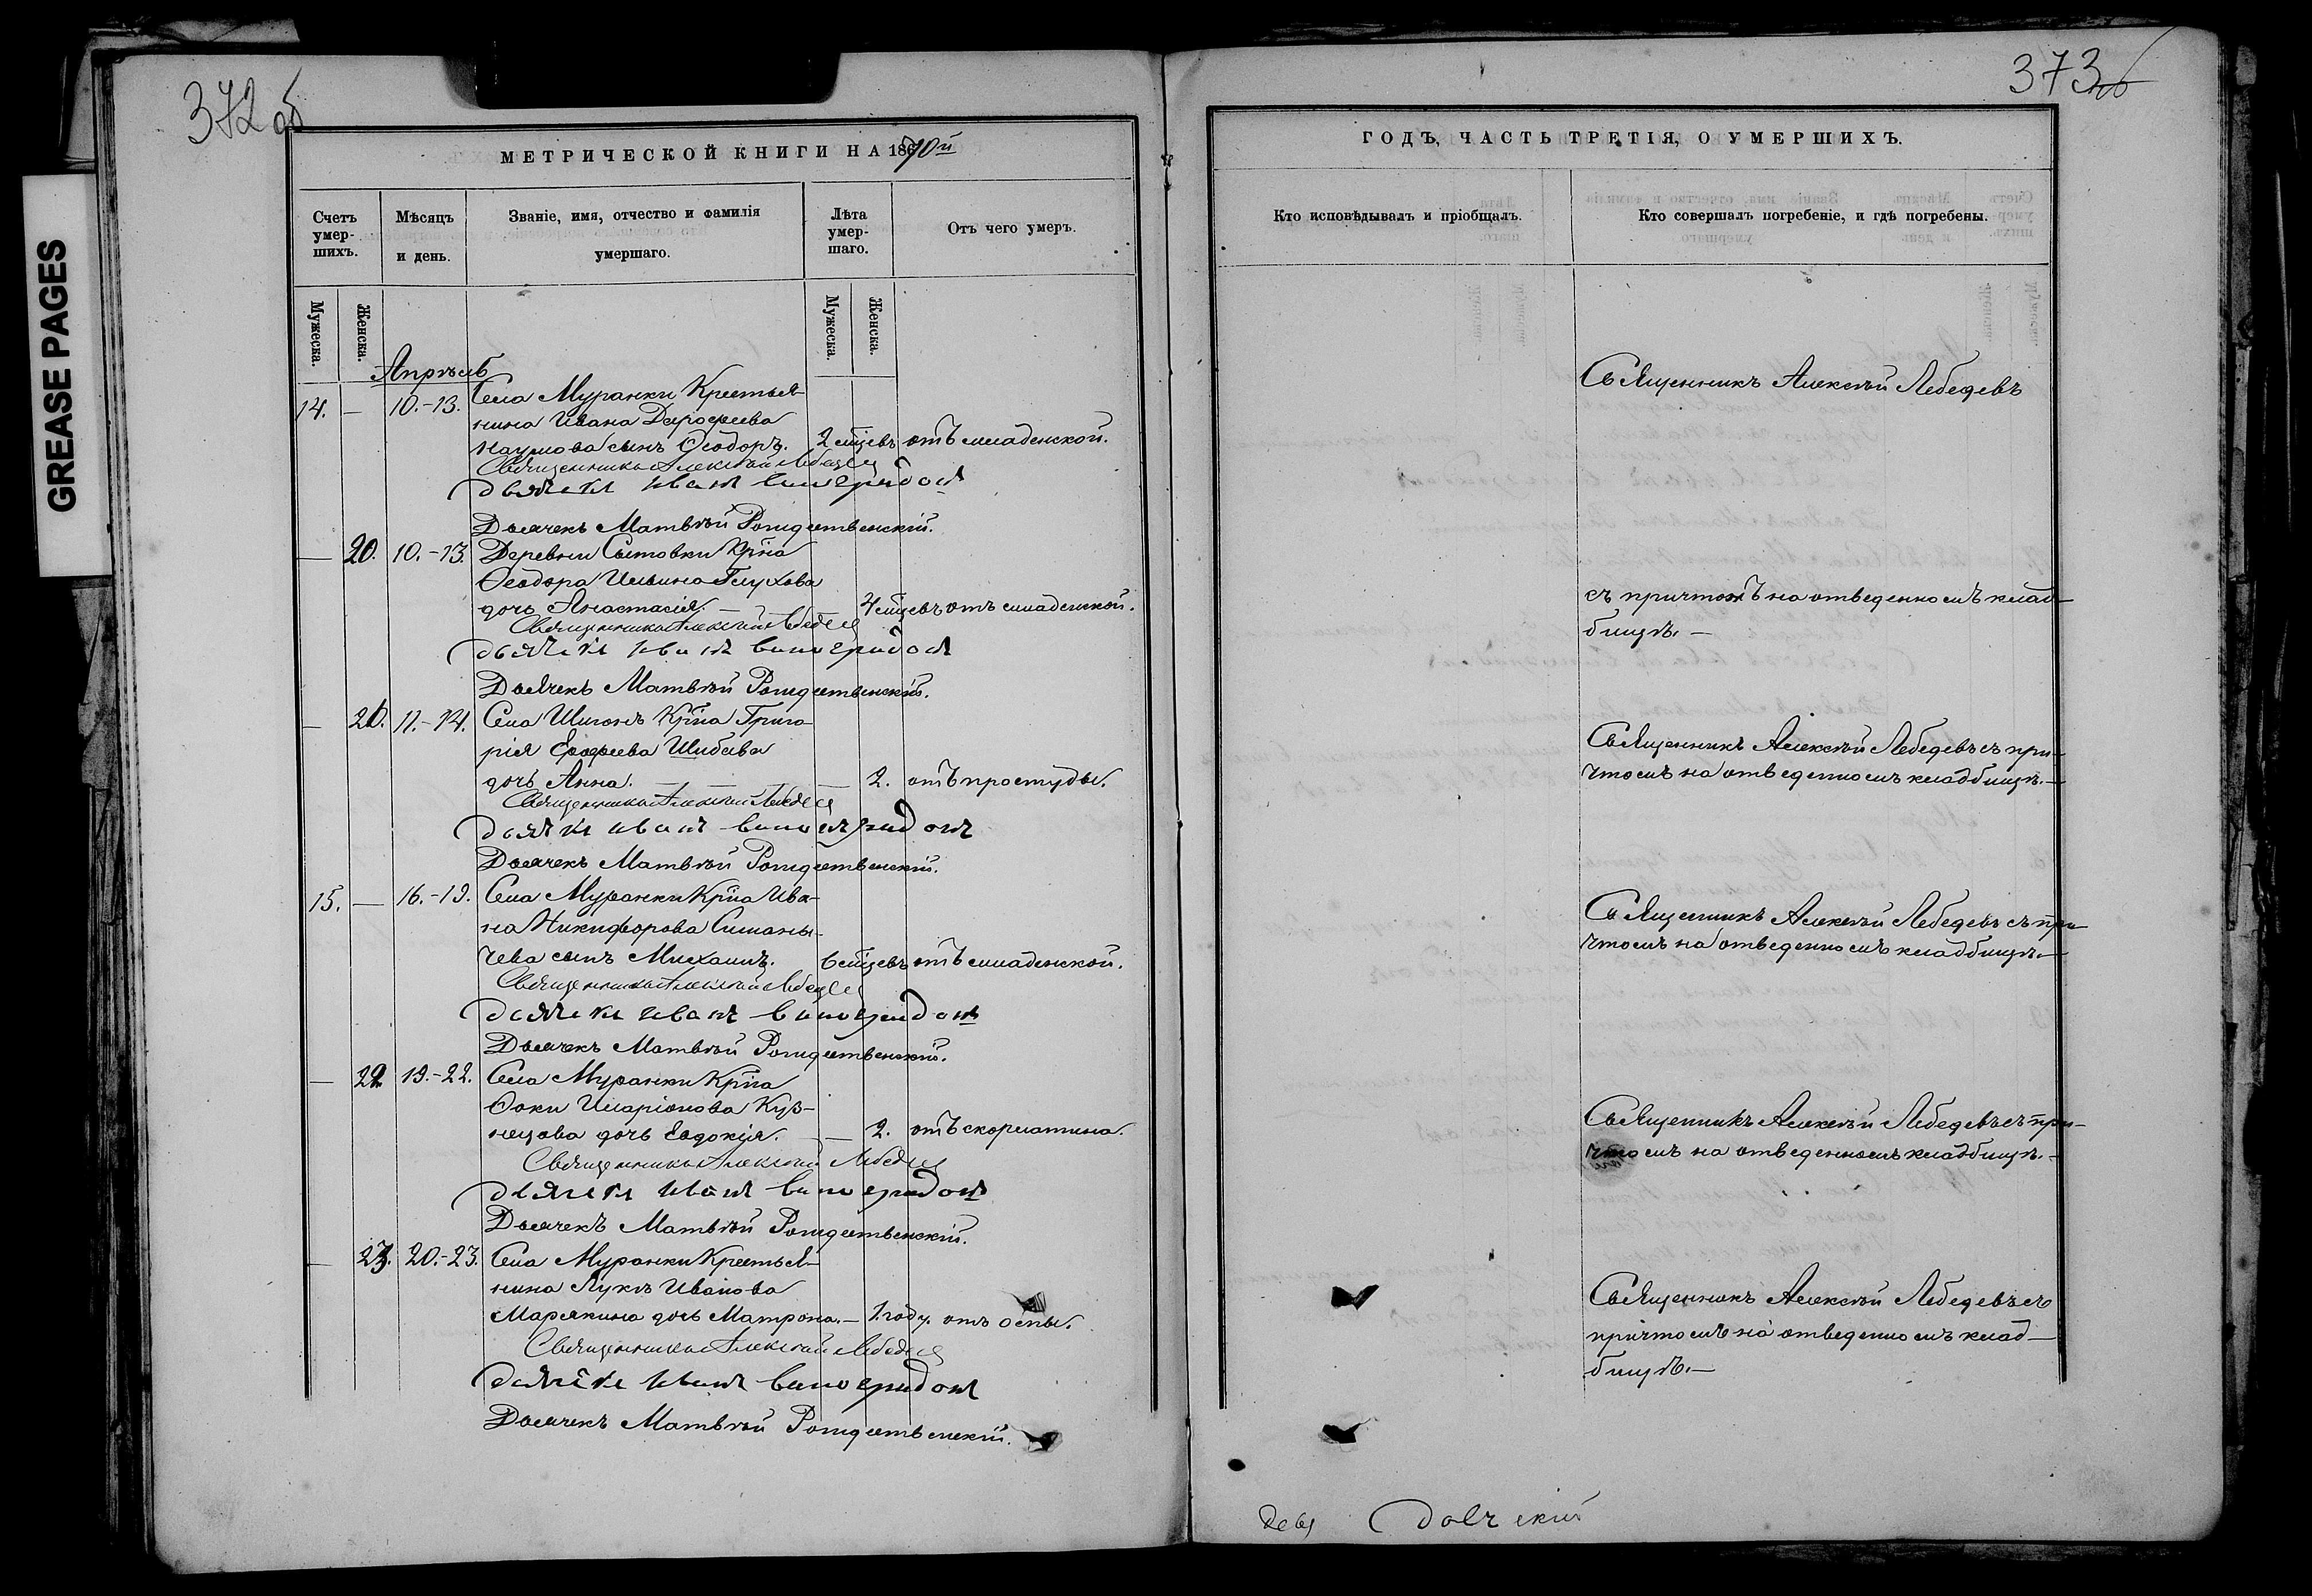 GREASE PAGES
372 об
МЕТРИЧЕСКОЙ КНИГИ НА 1870й
Счетъ умер-шихъ.
Мѣсяцъ и день.
Званіе, имя, отчество и фамилія умершаго.
Лѣта умер-шаго.
Отъ чего умеръ.
Мужеска.
Женска.
Мужеска.
Женска.
Апрѣль
14. — 10.-13. Села Муранки Крестья-
нина Ивана Дороѳеева
Наумова сынъ Ѳеодоръ. 2 мцевъ отъ младенской.
Священникъ Алексѣй Лебедев
Дьячекъ Иванъ Виноградовъ
Дьячекъ Матвѣй Рождественскій.
— 20. 10.-13. Деревни Сытовки Кр҃на
Ѳеодора Ильина Глухова
дочь Анастасія. — 4 мцевъ отъ младенской.
Священникъ Алексѣй Лебедев
Дьячекъ Иванъ Виноградовъ
Дьячекъ Матвѣй Рождественскій.
— 21. 11.-14. Села Шигонъ Кр҃на Григо-
рія Ероѳеева Шибаева
дочь Анна. — 2. отъ простуды.
Священникъ Алексѣй Лебедев
Дьячекъ Иванъ Виноградовъ
Дьячекъ Матвѣй Рождественскій.
15. — 16.-19. Села Муранки Кр҃на Ива-
на Никифорова Симаны-
чева сынъ Михаилъ. 6 мцевъ отъ младенской.
Священникъ Алексѣй Лебедев
Дьячекъ Иванъ Виноградовъ
Дьячекъ Матвѣй Рождественскій.
— 22 19.-22. Села Муранки Кр҃на
Ѳоки Иларіонова Куз-
нецова дочь Евдокія. — 2. отъ скорлатина.
Священникъ Алексѣй Лебедев
Дьячекъ Иванъ Виноградовъ
Дьячекъ Матвѣй Рождественскій.
— 23. 20.-23. Села Муранки Крестья-
нина Лукѣ Иванова
Марякина дочь Матрона. — 1. году. отъ оспы.
Священникъ Алексѣй Лебедев
Дьячекъ Иванъ Виноградовъ
Дьячекъ Матвѣй Рождественскій.
373
ГОДЪ, ЧАСТЬ ТРЕТІЯ, О УМЕРШИХЪ.
Кто исповѣдывалъ и пріобщалъ.
Кто совершалъ погребеніе, и гдѣ погребены.
Священникъ Алексѣй Лебедевъ
съ причтомъ на отведенномъ клад-
бищѣ. —
Священникъ Алексѣй Лебедевъ съ при-
чтомъ на отведенномъ кладбищѣ. —
Священникъ Алексѣй Лебедевъ съ при-
чтомъ на отведенномъ кладбищѣ. —
Священникъ Алексѣй Лебедевъ съ при-
чтомъ на отведенномъ кладбищѣ. —
Священникъ Алексѣй Лебедевъ съ
причтомъ на отведенномъ клад-
бищѣ. —